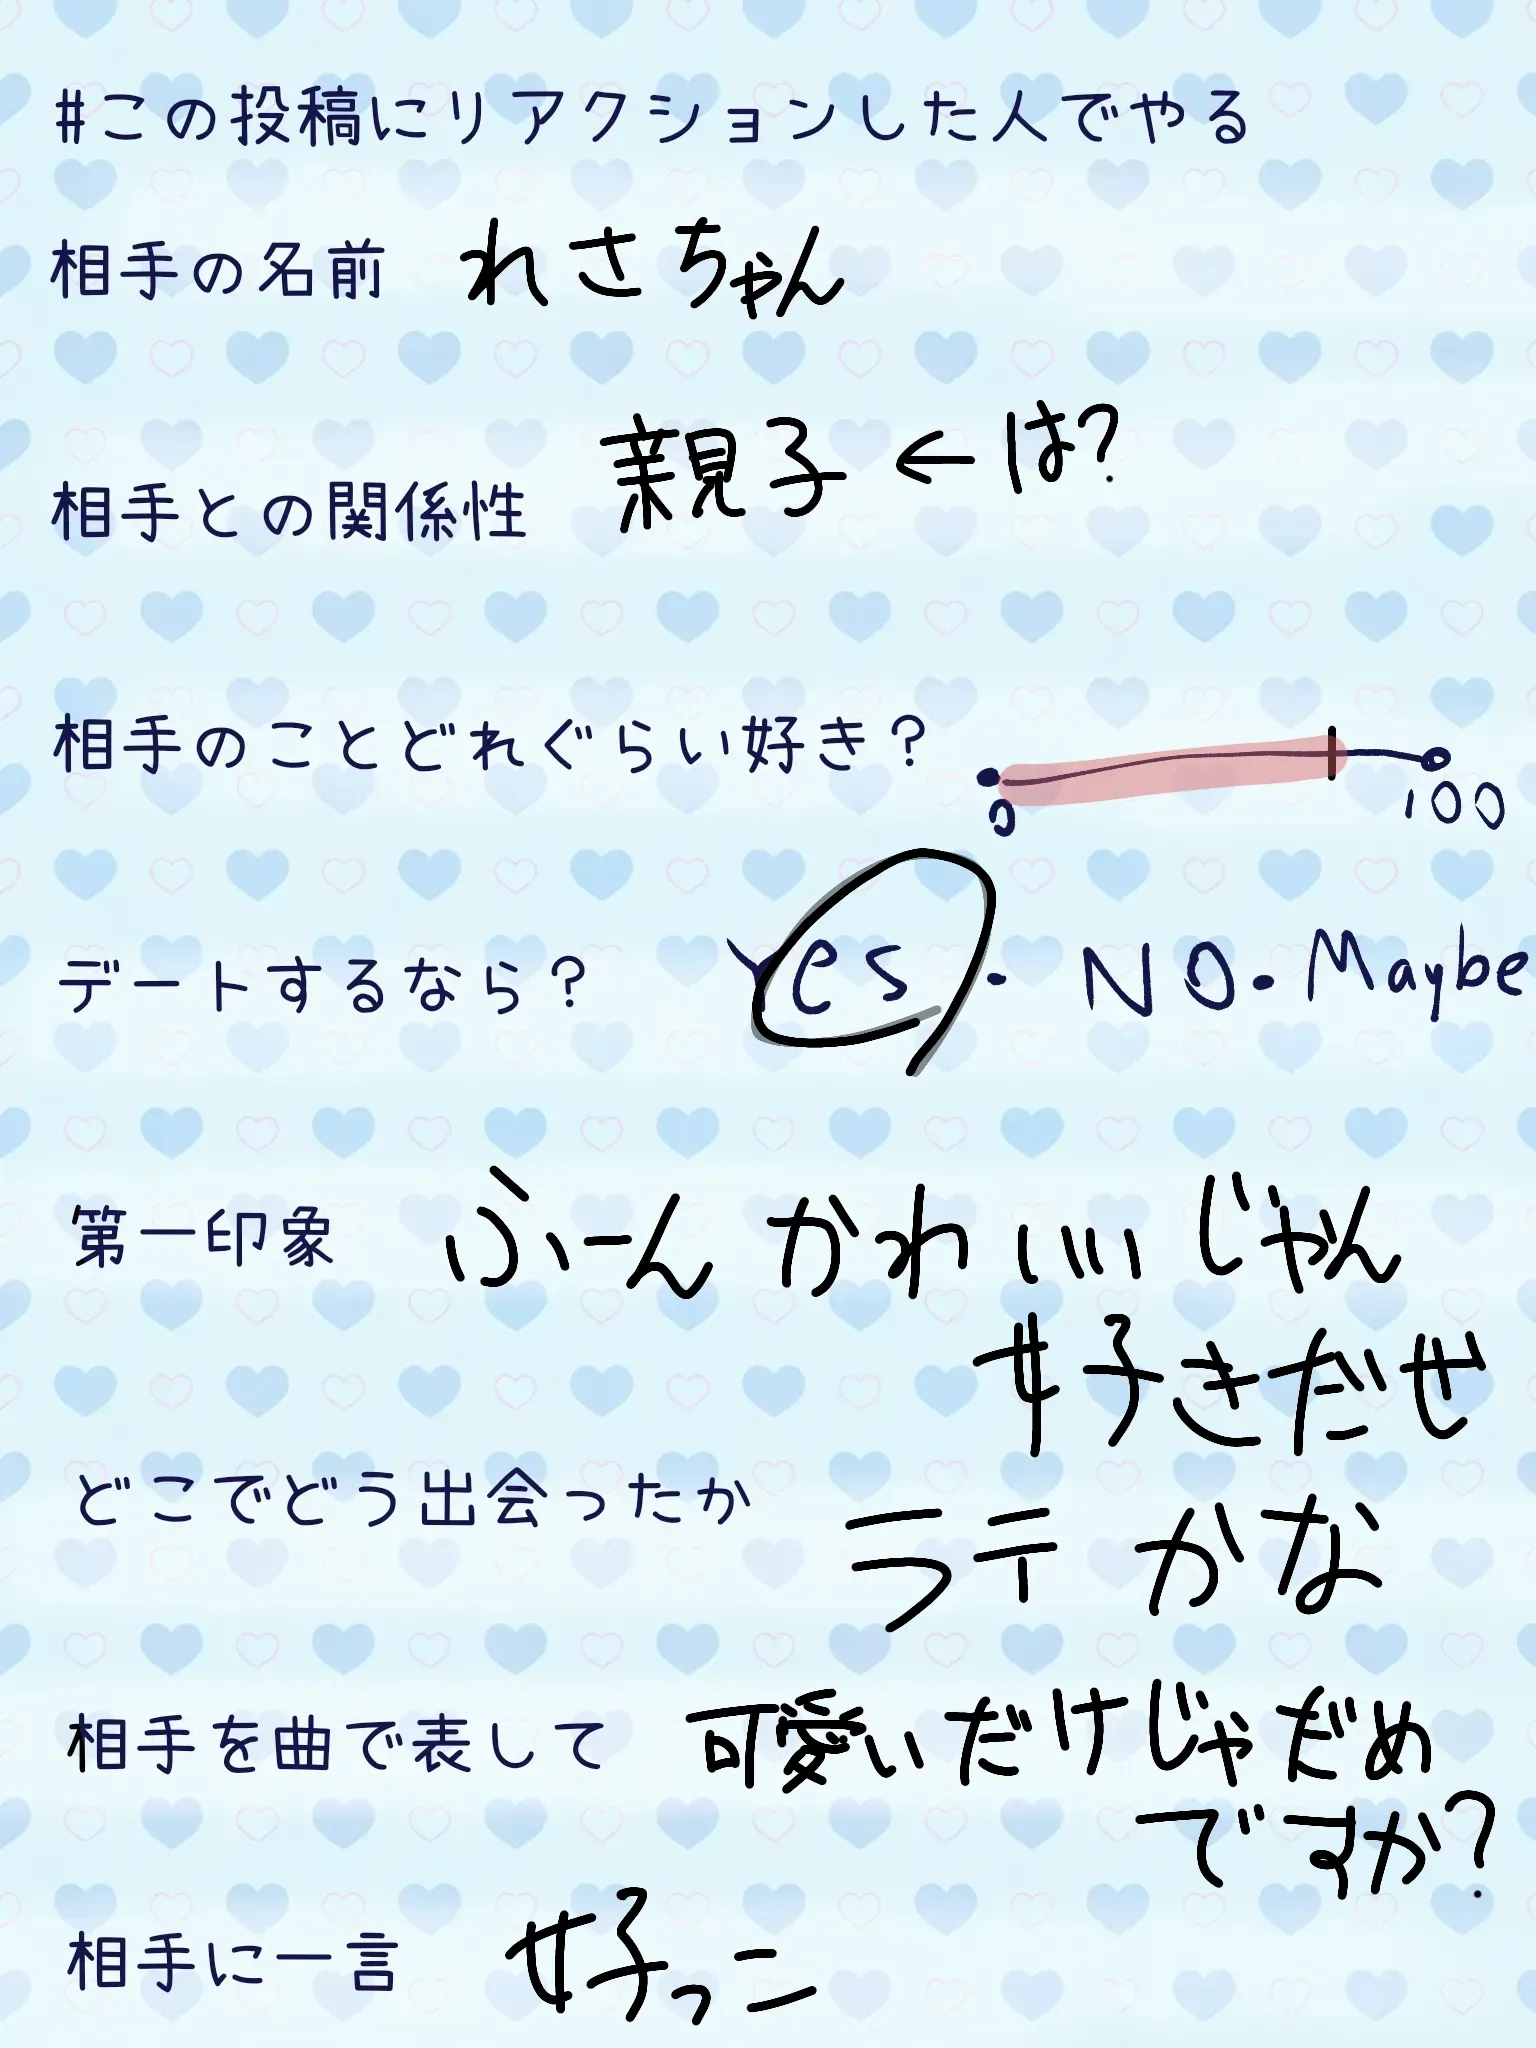 #この投稿にリアクションした人でやる
相手の名前 れさちゃん
相手との関係性 親子←は?
相手のことどれぐらい好き?
0 100
デートするなら? Yes・NO・Maybe
第一印象 ふーんかわいいじゃん
好きだぜ
どこでどう出会ったか ラテかな
相手を曲で表して 可愛いだけじゃだめ
ですか?
相手に一言 好っこ